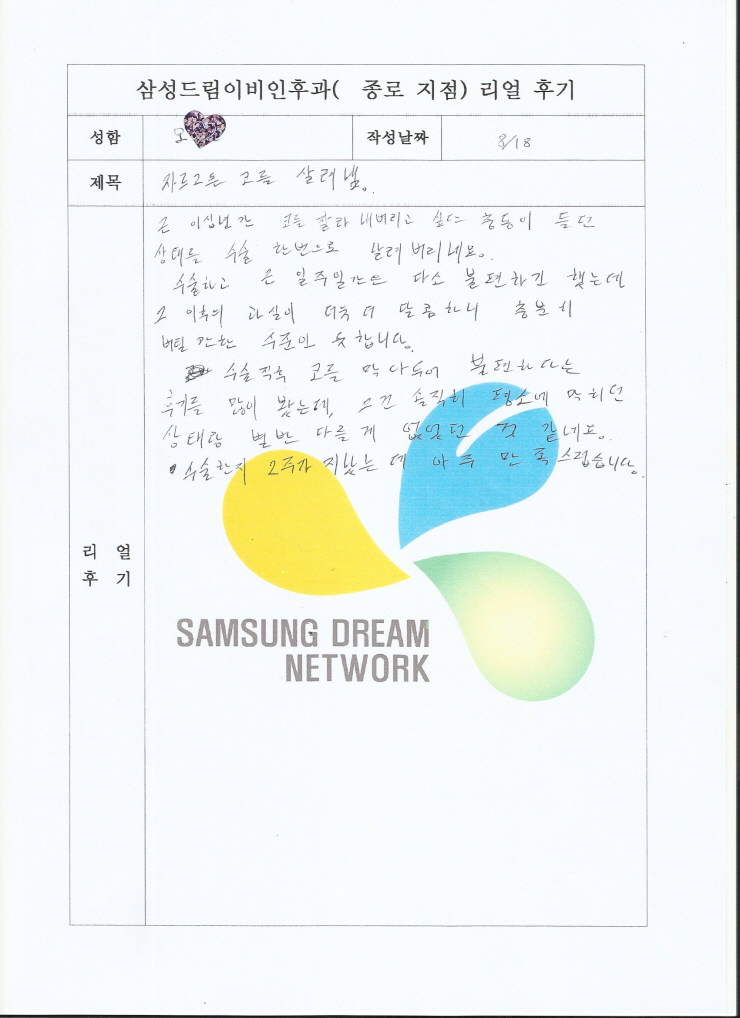 삼성드림이비인후과( 종로 지점) 리얼 후기
성함 오 작성날짜 8/18
제목 코를 살려냄.
근 이십년간 코를 잘라 내버리고 싶은 충동이 들던
상태를 수술 한번으로 살려 버리네요.
수술하고 은 일주일간은 다소 불편하긴 했는데
그 이후의 과실이 더욱 더 달콤하니 충분히
버틸 만한 수준인 듯합니다.
수술직후 코를 막아두어 불편하다는
후기를 많이 봤는데, 그건 솔직히 평소에 막히던
상태랑 별반 다를 게 없었던 것 같네요.
수술한지 2주가 지났는데 아주 만족스럽습니다.
리얼
후기
SAMSUNG DREAM
NETWORK